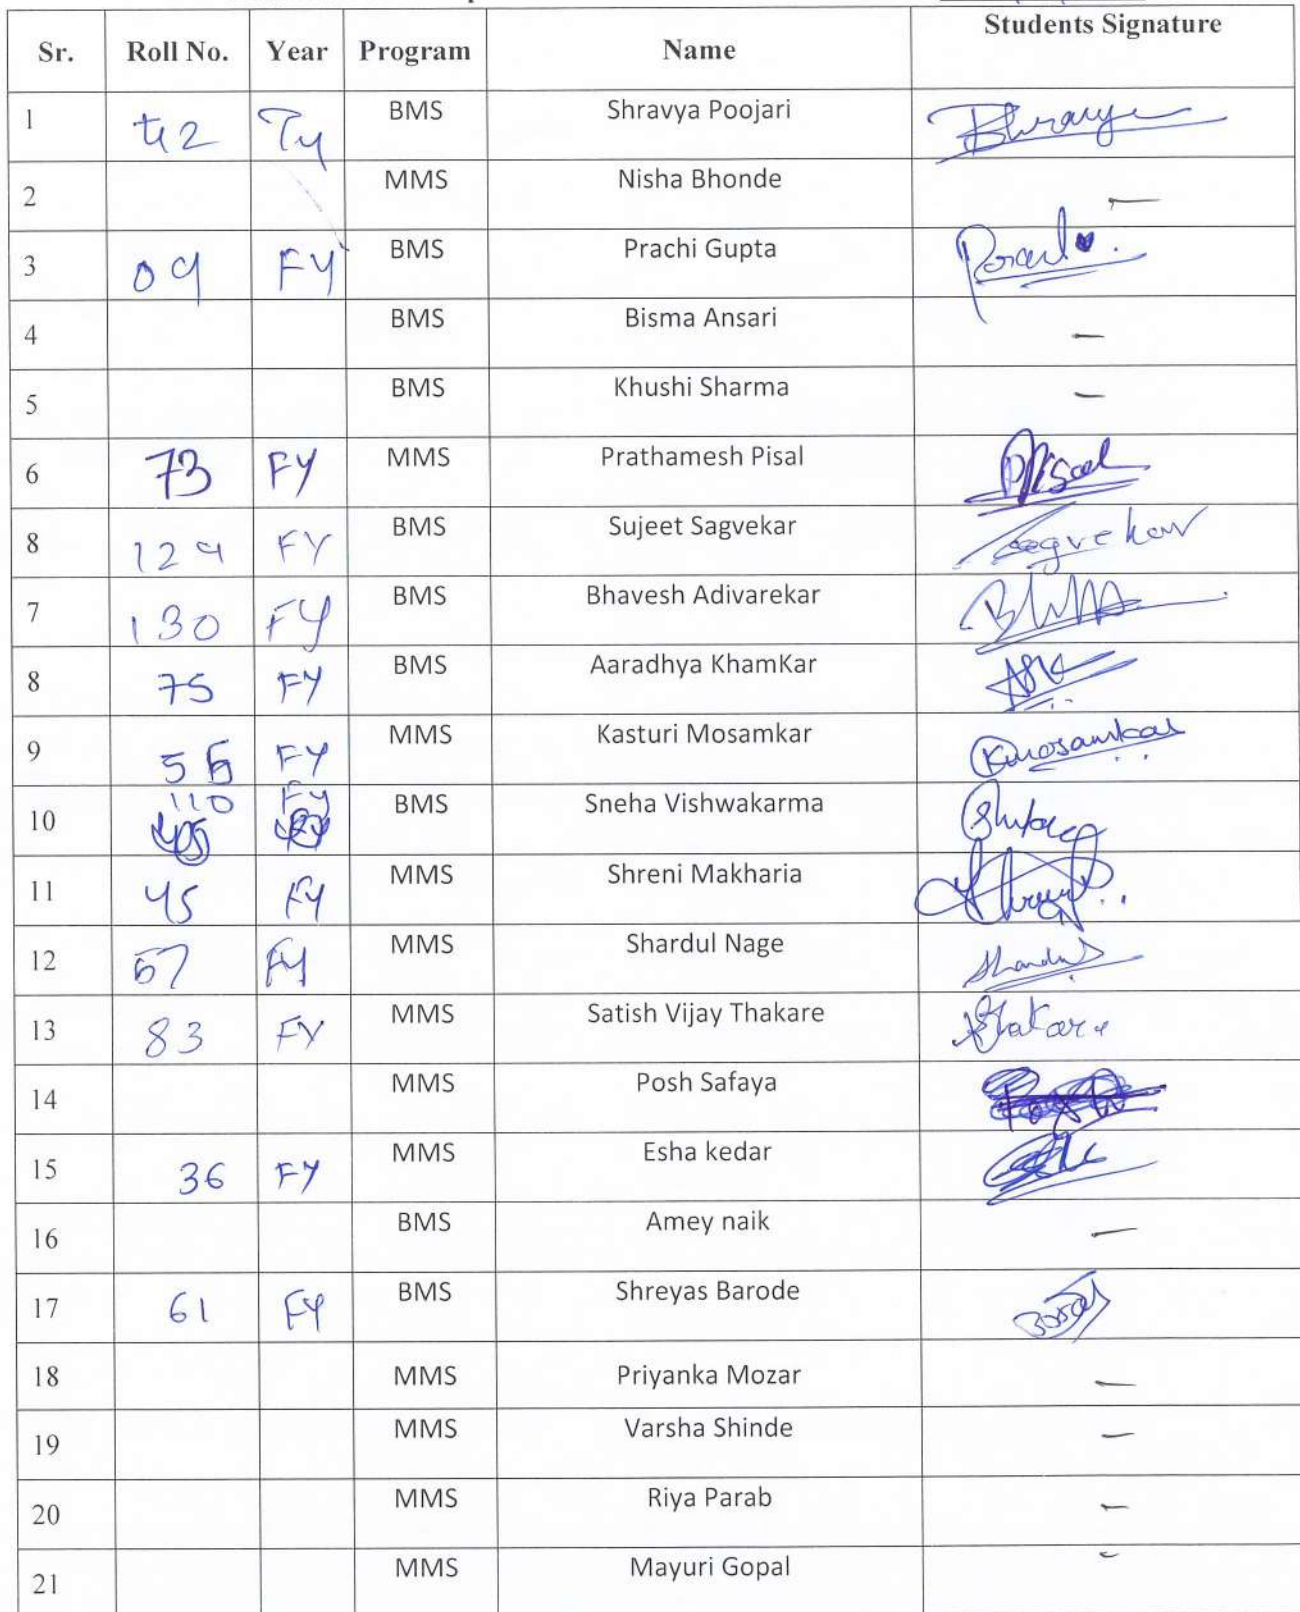 Sr. Roll No. Year Program Name Students Signature
1 42 Ty BMS Shravya Poojari
2 MMS Nisha Bhonde —
3 09 FY BMS Prachi Gupta
4 BMS Bisma Ansari —
5 BMS Khushi Sharma —
6 73 FY MMS Prathamesh Pisal Pisal
8 129 FY BMS Sujeet Sagvekar Sagvekar
7 130 FY BMS Bhavesh Adivarekar
8 75 FY BMS Aaradhya KhamKar
9 56 FY MMS Kasturi Mosamkar Kmosamkar
10 110 FY BMS Sneha Vishwakarma
11 45 FY MMS Shreni Makharia
12 57 FY MMS Shardul Nage Shardul
13 83 FY MMS Satish Vijay Thakare
14 MMS Posh Safaya
15 36 FY MMS Esha kedar
16 BMS Amey naik —
17 61 FY BMS Shreyas Barode
18 MMS Priyanka Mozar —
19 MMS Varsha Shinde —
20 MMS Riya Parab —
21 MMS Mayuri Gopal -